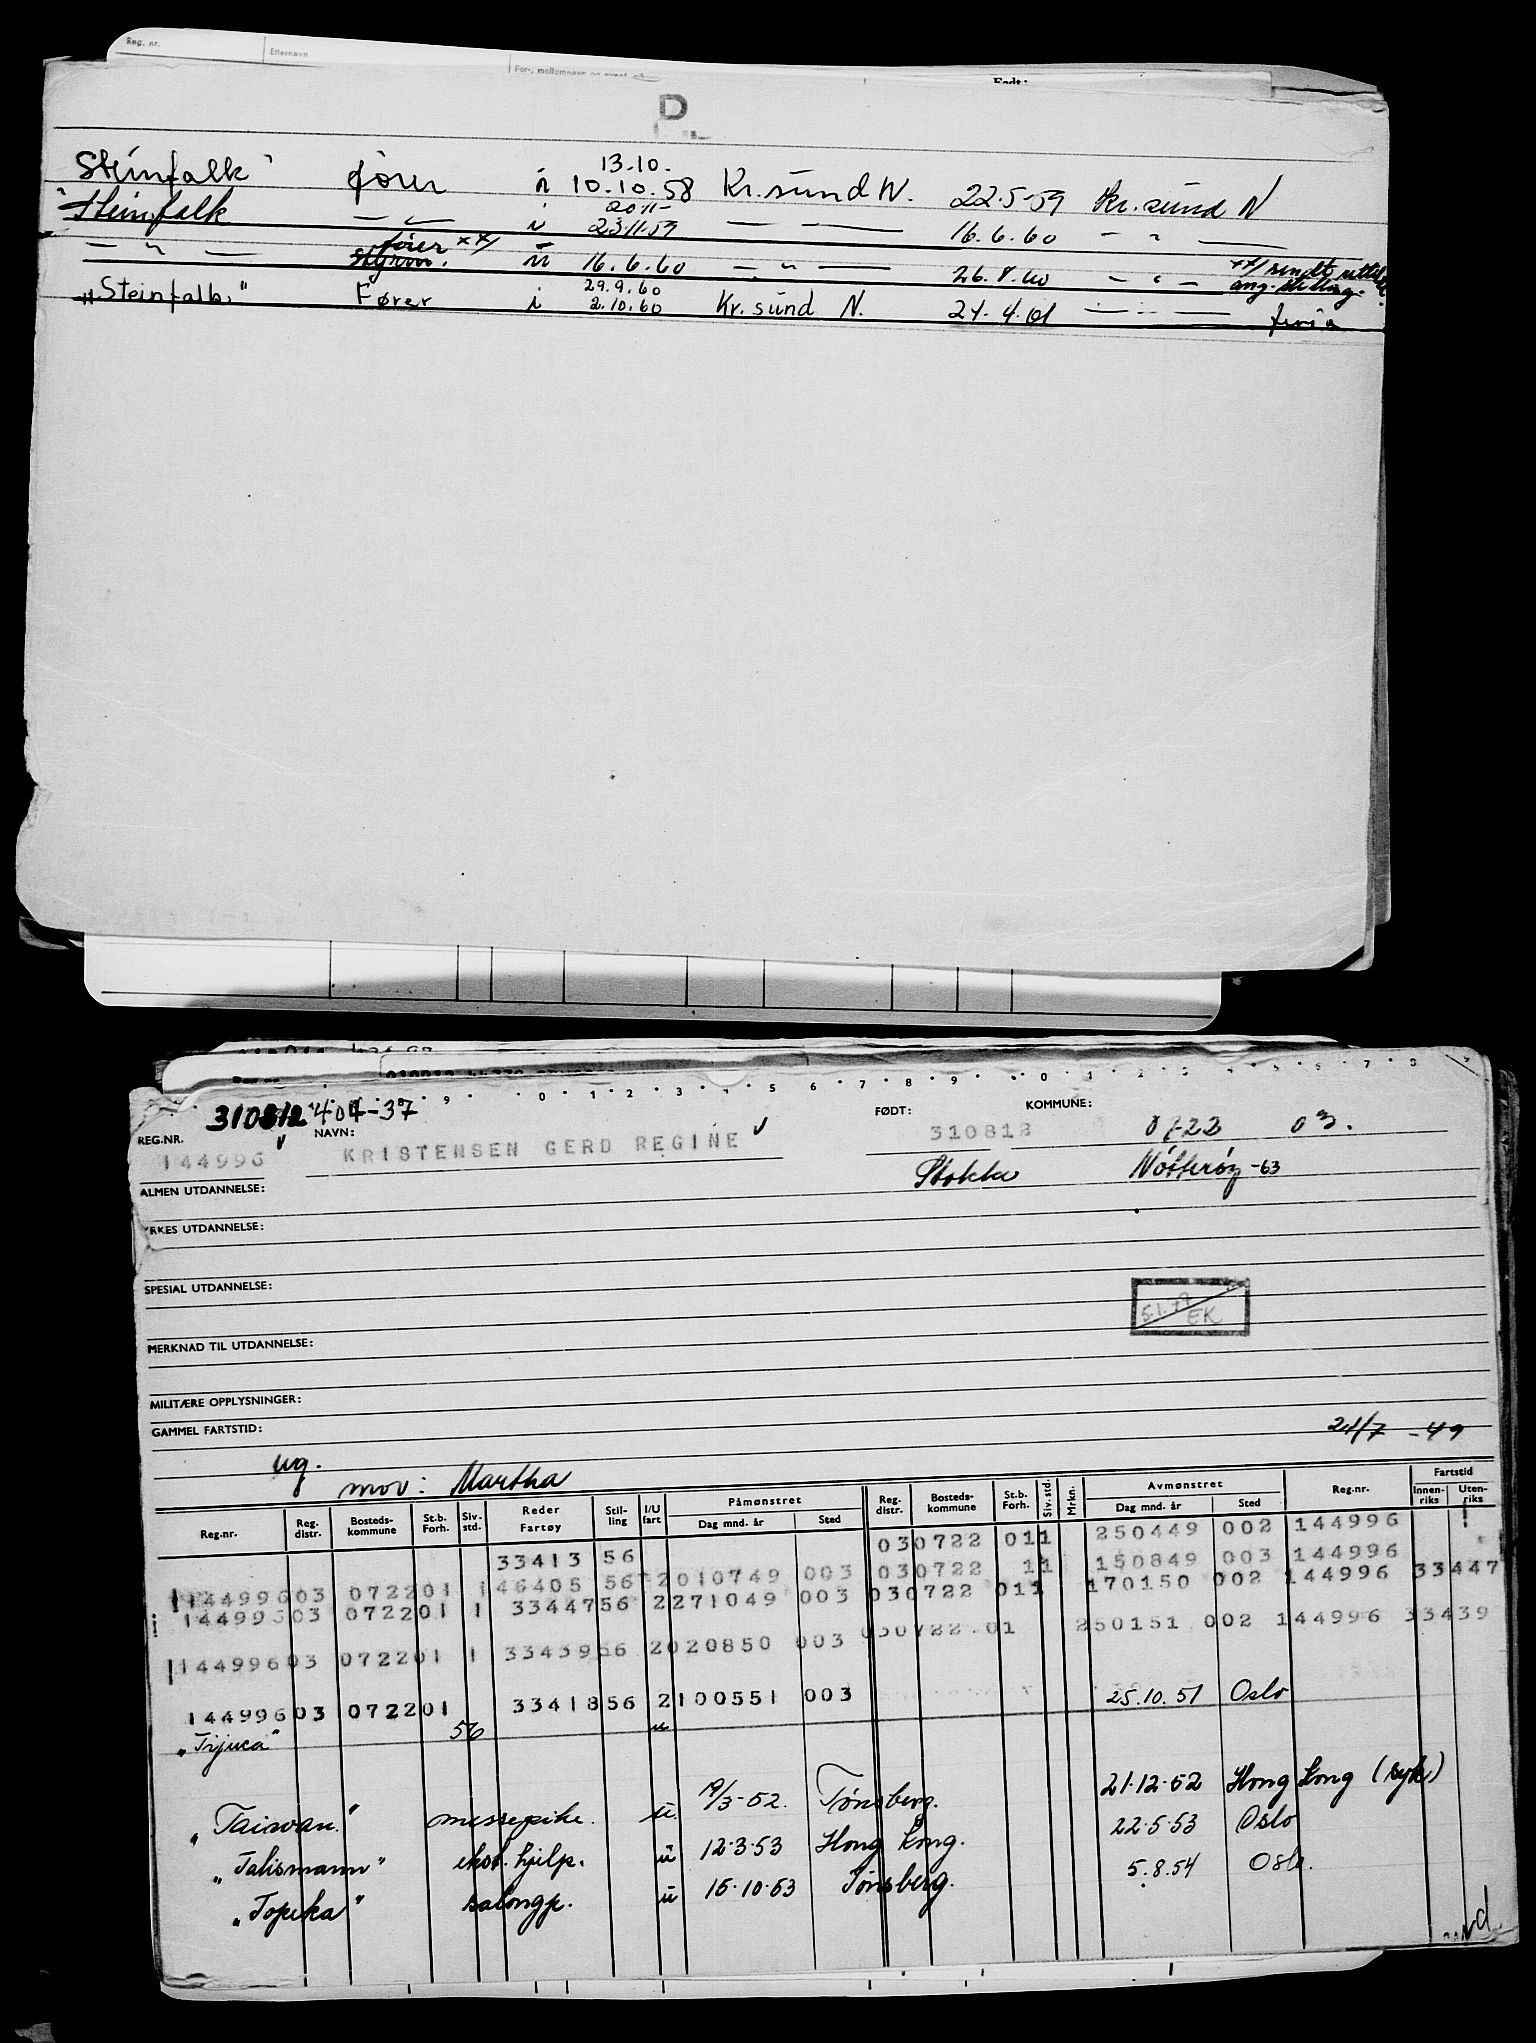 Reg. nr. Etternavn For-, mellomnavn og event. Født:
P
Steinfalk" fører i 13.10. 10.10.58 Kr.sund N. 22.5-59 Kr.sund N
"Steinfalk — " — i 20 11- 23.11.59 — — 16.6.60 — " —
— " — styrm. fører xx/ u 16.6.60 — " — 26.8.60 — " — xx/ sendt
ang. stilling.
"Steinfalk" Fører i 29.9.60 2.10.60 Kr.sund N. 21.4.61 — " — feria
310812 404-37
REG.NR. NAVN: FØDT: KOMMUNE:
144996 KRISTENSEN GERD REGINE 310812 0722 03.
Stokke Nøtterøy -63
ALMEN UTDANNELSE:
YRKES UTDANNELSE:
SPESIAL UTDANNELSE:
5.1.79 EK
MERKNAD TIL UTDANNELSE:
MILITÆRE OPPLYSNINGER:
GAMMEL FARTSTID:
21/7 -49
ug.
mor: Martha
Reg.nr. Reg. distr. Bosteds- kommune St.b. Forh. Siv. std. Reder Fartøy Stil- ling I/U fart Påmønstret Dag mnd. år Sted Reg. distr. Bosteds- kommune St.b. Forh. Siv. std. Mrkn. Avmønstret Dag mnd. år Sted Reg.nr. Fartstid Innen- riks Uten- riks
33413 56 030722 011 250449 002 144996
144996 03 0722 01 1 46405 56 2 010749 003 030722 11 150849 003 144996
144996 03 0722 01 1 33447 56 2 271049 003 030722 011 170150 002 144996 33447
144996 03 0722 01 1 33439 56 2 020850 003 030722 01 250151 002 144996 33439
144996 03 0722 01 33418 56 2 100551 003 25.10.51 Oslo
"Tijuca" 56 u
"Taiwan" messepike. u. 19/3-52. Tønsberg. 21.12.52 Hong Kong (syk)
"Talismann" ekst. hjelp. u 12.3.53 Hong Kong. 22.5.53 Oslo
"Topeka" salongp. u 15.10.53 Tønsberg. 5.8.54 Oslo.